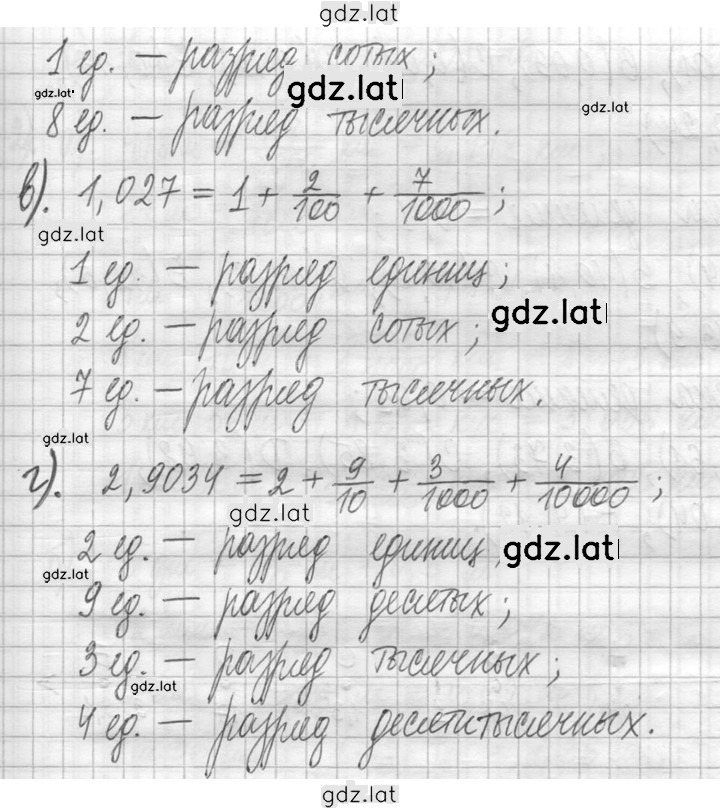 gdz.lat
1 ед. — разряд сотых;
gdz.lat
gdz.lat
gdz.lat
8 ед. — разряд тысячных.
в). 1,027 = 1 + 2/100 + 7/1000;
gdz.lat
1 ед. — разряд единиц;
gdz.lat
2 ед. — разряд сотых;
7 ед. — разряд тысячных.
gdz.lat
г). 2,9034 = 2 + 9/10 + 3/1000 + 4/10000;
gdz.lat
2 ед. — разряд единиц;
gdz.lat
gdz.lat
9 ед. — разряд десятых;
3 ед. — разряд тысячных;
gdz.lat
4 ед. — разряд десятитысячных.
gdz.lat